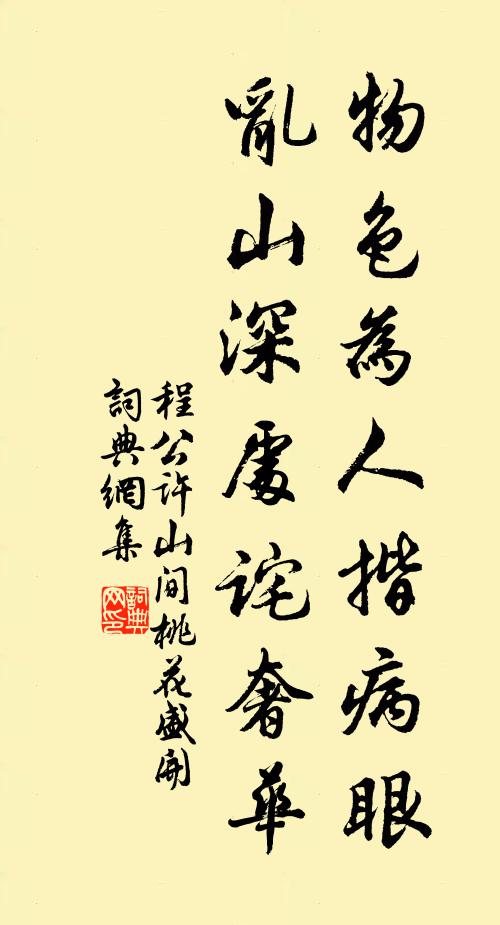 物色為人揩病眼
亂山深處詫奢華
程公許山间桃花盛開
詞典網集
詞典网印